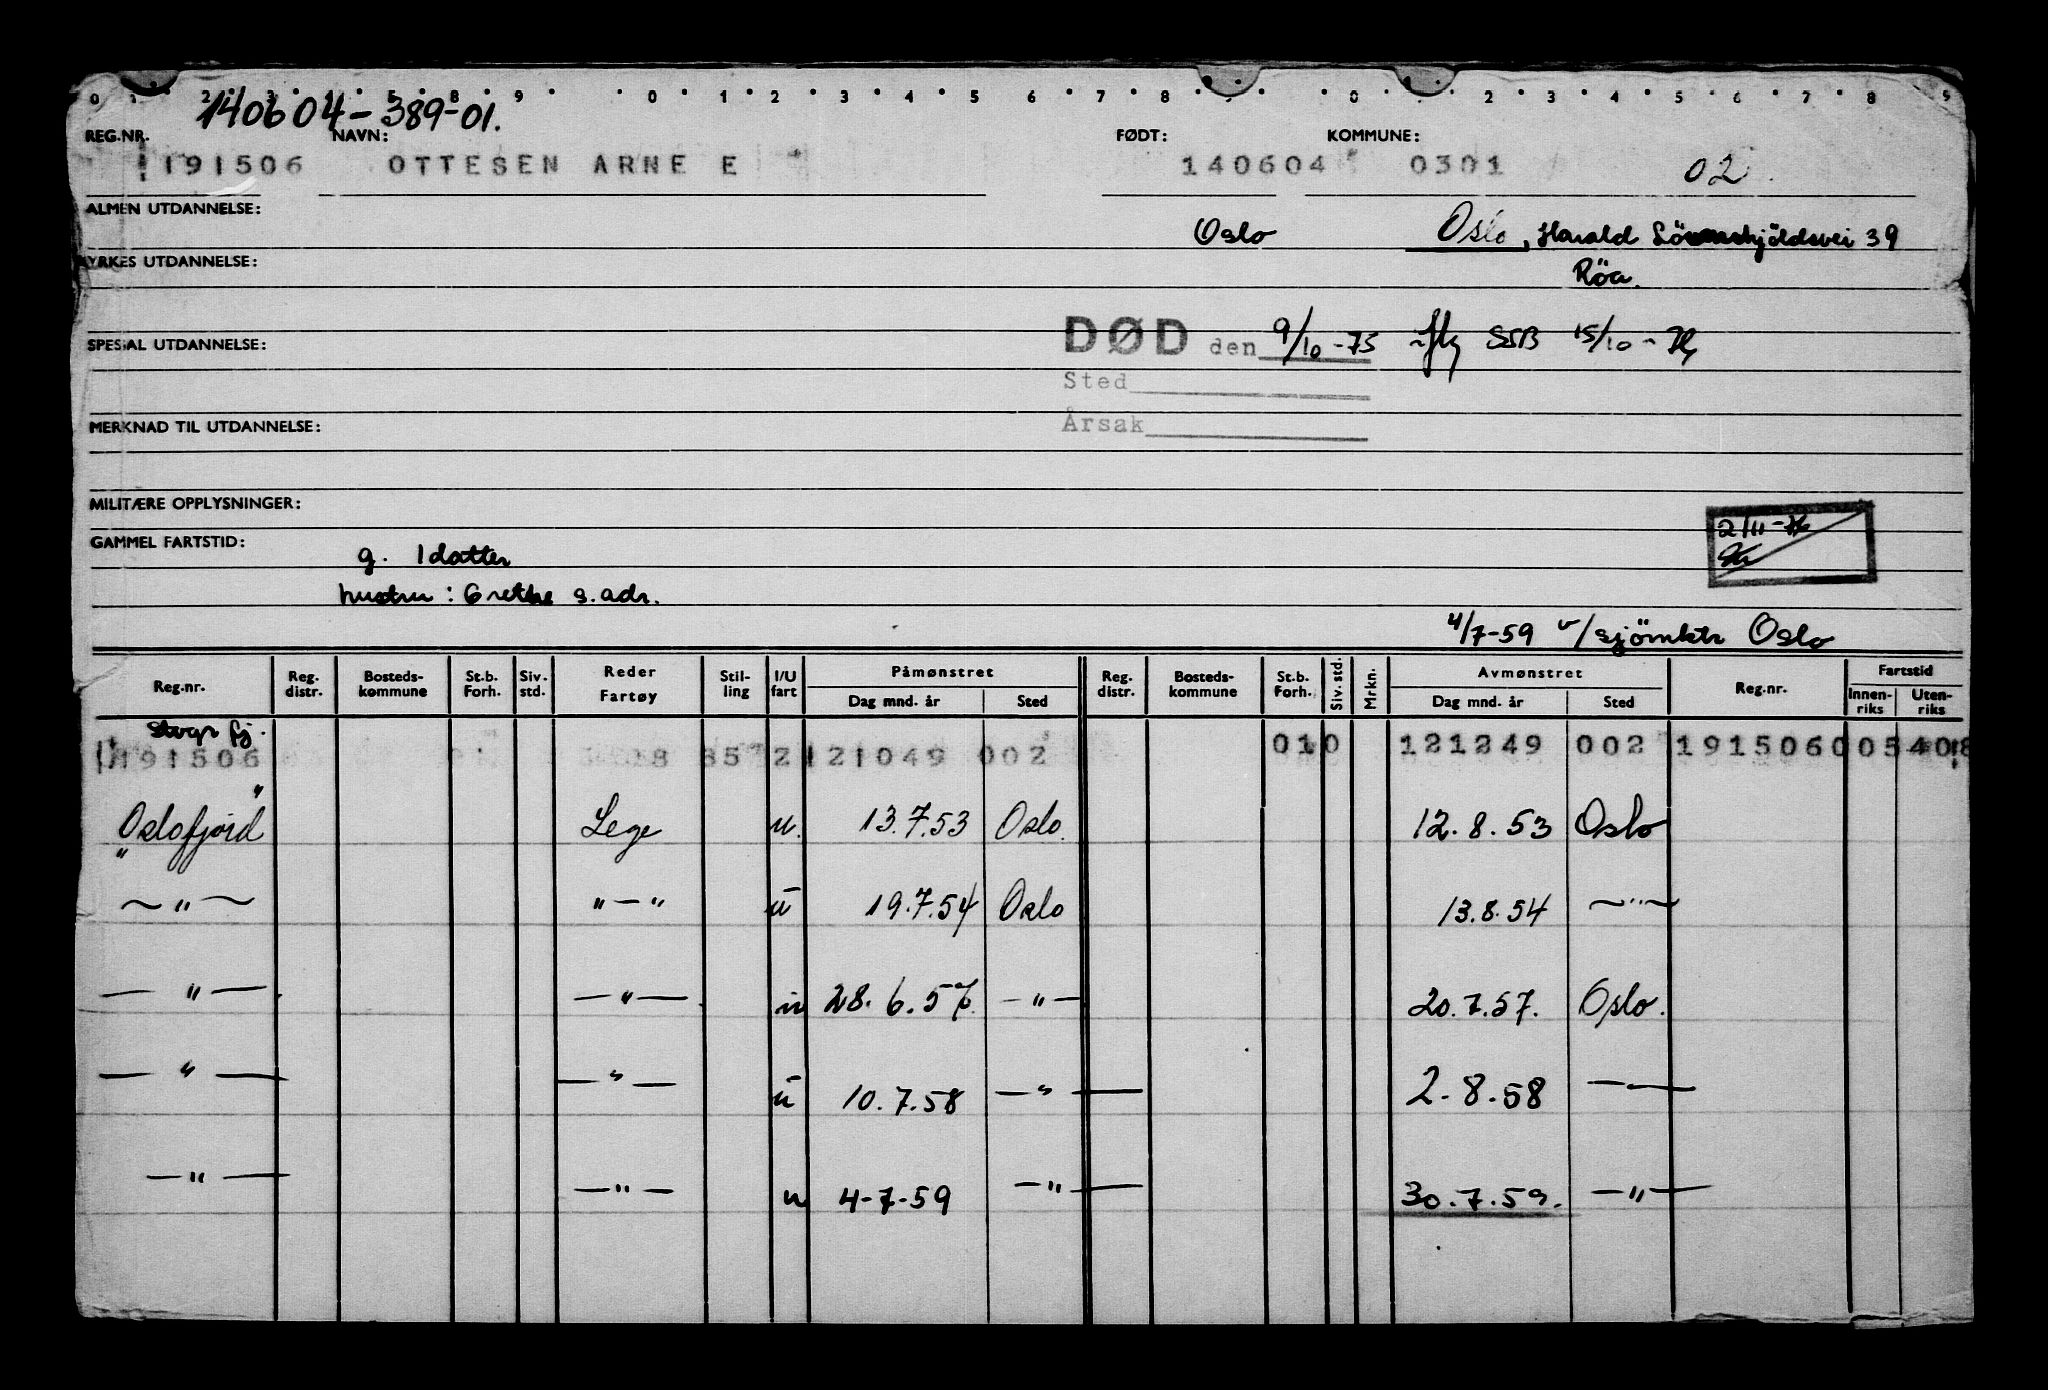 0 1 2 3 4 5 8 9 0 1 2 3 4 5 6 7 8 9 0 1 2 3 4 5 6 7 8 9
140604-389-01.
REG.NR. NAVN: FØDT: KOMMUNE:
191506 OTTESEN ARNE E 140604 0301 02
ALMEN UTDANNELSE: Oslo Oslo, Harald Lövenskjöldsvei 39
YRKES UTDANNELSE: Röa.
SPESIAL UTDANNELSE: DØD den 9/10-75 SSB 15/10-
Sted
MERKNAD TIL UTDANNELSE: Årsak
MILITÆRE OPPLYSNINGER:
2/11-76
GAMMEL FARTSTID: g. 1 datter
hustru: Grethe s. adr.
4/7-59 v/sjömktr Oslo
Reg.nr. Reg. distr. Bosteds-kommune St.b. Forh. Siv. std. Reder Fartøy Stil-ling I/U fart Påmønstret Dag mnd. år Sted Reg. distr. Bosteds-kommune St.b. Forh. Siv. std. Mrkn. Avmønstret Dag mnd. år Sted Reg.nr. Fartstid Innen-riks Uten-riks
Stvgr fj.
191506 18 85 2 121049 002 010 121249 002 1915060 05408
"Oslofjord" Lege u. 13.7.53 Oslo. 12.8.53 Oslo
~"~ "—" u 19.7.54 Oslo 13.8.54 ~"~
—"— —"— u 28.6.57. —"— 20.7.57. Oslo.
—"— —"— u 10.7.58 —"— 2.8.58 —
—"— —"— u 4-7-59 —"— 30.7.59. —"—